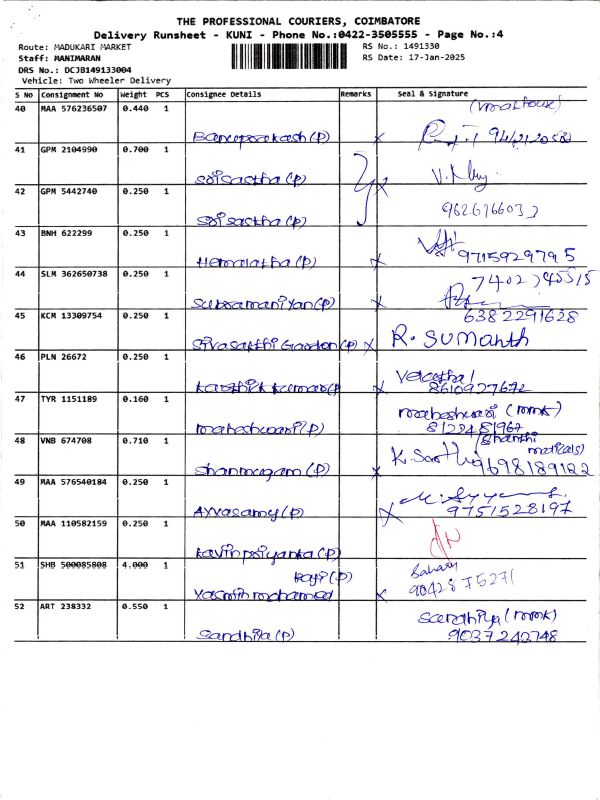 THE PROFESSIONAL COURIERS, COIMBATORE
Delivery Runsheet - KUNI - Phone No.:0422-3505555 - Page No.:4
Route: MADUKARI MARKET RS No.: 1491330
Staff: MANIMARAN RS Date: 17-Jan-2025
DRS No.: DCJB149133004
Vehicle: Two Wheeler Delivery
S No Consignment No Weight PCS Consignee Details Remarks Seal & Signature
40 MAA 576236507 0.440 1
(P)
41 GPM 2104990 0.700 1
(P)
42 GPM 5442740 0.250 1
(P)
43 BNH 622299 0.250 1
Hemalatha (P) 9715929795
44 SLM 362650738 0.250 1
Subramaniyan (P)
45 KCM 13309754 0.250 1 6382291628
Sivasakthi Garden (P) x R. Sumanth
46 PLN 26672 0.250 1
Karthik Kumar (P x 8610927672
47 TYR 1151189 0.160 1 maheshwari (mmk)
maheshwari (P) 8122481967
48 VNB 674708 0.710 1
Shanmugam (P) x 9698189122
49 MAA 576540184 0.250 1
Ayyasamy (P) x 9751528197
50 MAA 110582159 0.250 1
Kavinpriyanka (P)
51 SHB 500085808 4.000 1
Raji (P)
Yasmin mohamed x 9042875271
52 ART 238332 0.550 1 Sandhiya (mmk)
Sandhiya (P) 9037242748